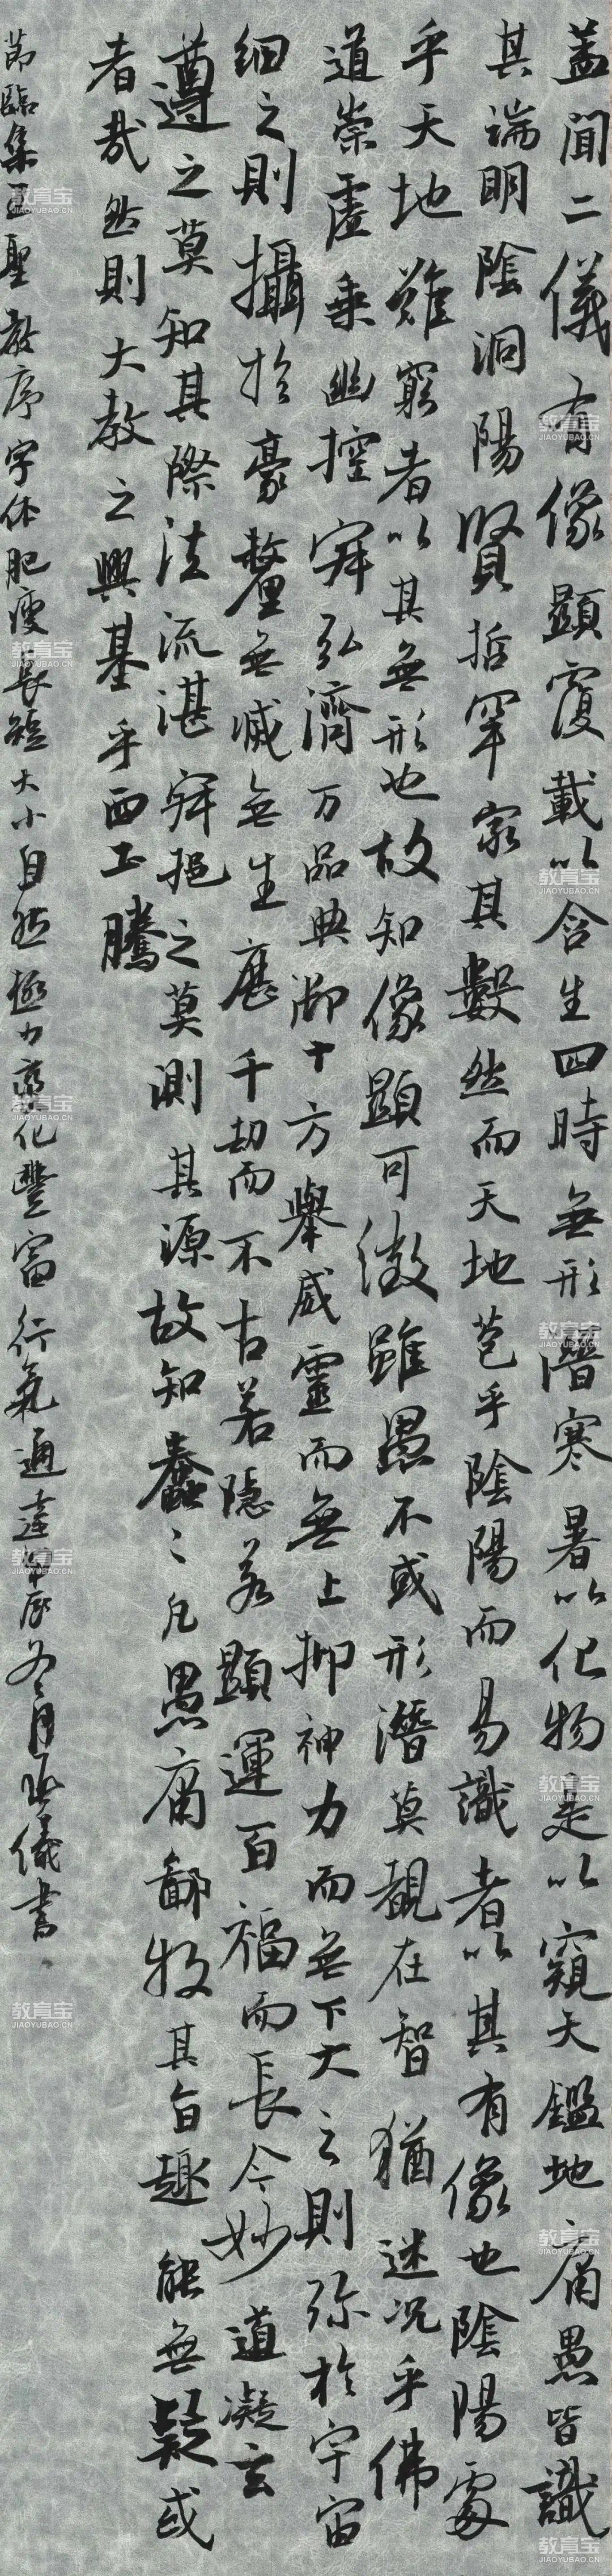 盖聞二儀有像顯覆載以含生四時無形潛寒暑以化物是以窺天鑑地庸愚皆識
其端明陰洞陽賢哲罕窮其數然而天地苞乎陰陽而易識者以其有像也陰陽處
乎天地難窮者以其無形也故知像顯可徵雖愚不或形潛莫覩在智猶迷况乎佛
道崇虛乗幽控寂弘濟万品典御十方舉威靈而無上抑神力而無下大之則弥於宇宙
細之則攝於豪釐無滅無生歷千劫而不古若隱若顯運百福而長今妙道凝玄
遵之莫知其際法流湛寂挹之莫測其源故知蠢々凡愚庸鄙牧其旨趣能無疑或
者哉然則大教之興基乎西土騰
節臨集王聖教序字体肥瘦長短大小自然極力變化豐富行氣通達甲辰冬月儀書
教育宝
JIAOYUBAO.CN